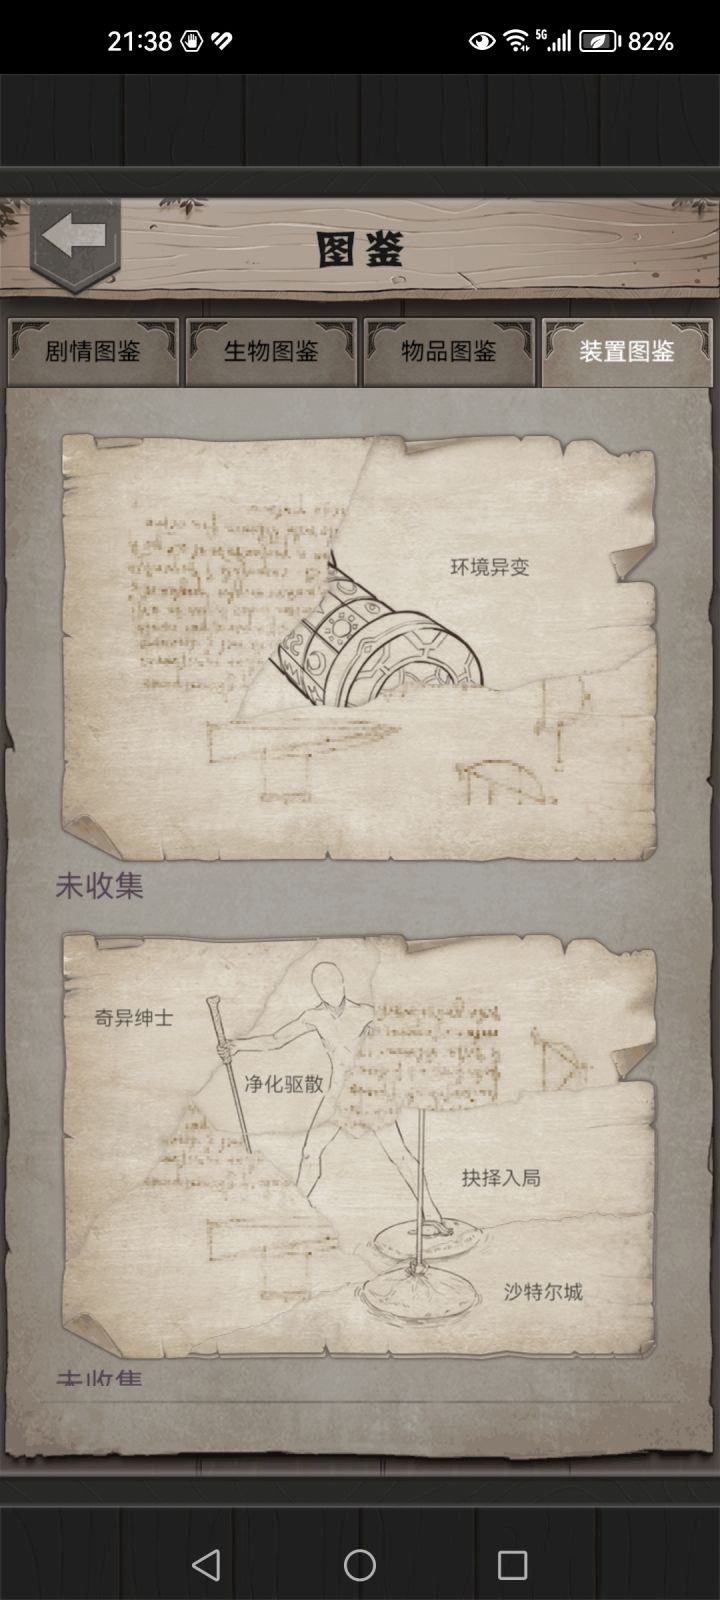 21:38 5G 82%
图鉴
剧情图鉴 生物图鉴 物品图鉴 装置图鉴
环境异变
未收集
奇异绅士
净化驱散
抉择入局
沙特尔城
未收集